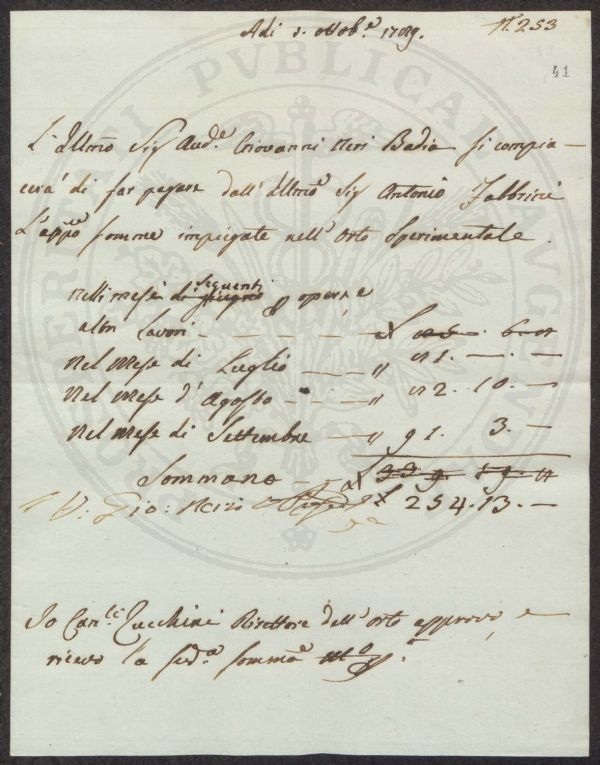 Adi 1. ottob.e 1789.
N. 253
41
L'Illmo Sig Aud.e Giovanni Neri Badia si compia-
cerà di far pagare dall'Illmo Sig Antonio Fabbrini
L'app.e somme impiegate nell'Orto Sperimentale
nelli mesi di giugno seguenti p opere, e
altri Lavori
Nel Mese di Luglio
Nel Mese d'Agosto 10. —
Nel Mese di Settembre — " 91. 3. —
Sommano
V. Gio: Neri £ 254.13.—
Io Can.co Zucchini Direttore dell'orto approvo, e
ricevo la sud.a somma
PROSPERITATI PVBLICAE AVGENDAE